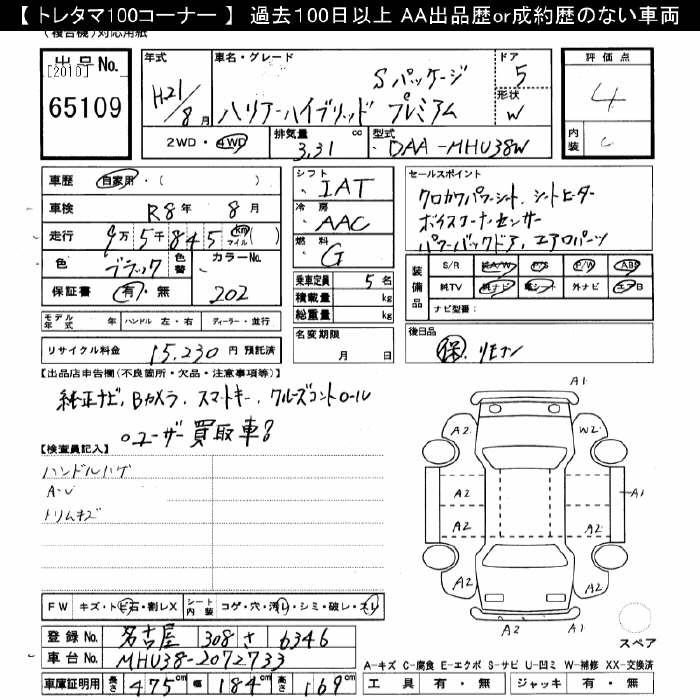 【 トレタマ100コーナー 】 過去100日以上 AA出品歴or成約歴のない車両
(複合機)対応用紙
出品No. [2010]
65109
年式 H21/8月
車名・グレード Sパッケージ
ハリアーハイブリッド プレミアム
ドア 5
形状 W
2WD・4WD 排気量 3.31 cc 型式 DAA-MHU38W
評価点 4
内装 C
車歴 自家用・( )
車検 R8年 8月
走行 9万5千845 km マイル ( )
色 ブラック 色替 カラーNo. 202
保証書 有・無
シフト IAT
冷房 AAC
燃料 G
乗車定員 5名
積載量 kg
総重量 kg
名変期限 月 日
セールスポイント
クロカワパワーシート、シートヒーター
ボイスコーナーセンサー
パワーバックドア、エアロパーツ
装備品 S/R 純A/W P/S P/W ABS
純TV 純ナビ 革シート 外ナビ エアB
ナビ型番:
モデル年式 年 ハンドル 左・右 ディーラー・並行
リサイクル料金 15,230 円 預託済
後日品
保、リモコン
【出品店申告欄(不良箇所・欠品・注意事項等)】
純正ナビ、Bカメラ、スマートキー、クルーズコントロール
○ユーザー買取車8
【検査員記入】
ハンドルハゲ
A-U
トリムキズ
A1
A2 W2
A2 A2 A1
A2 A2
A2 A2
A2 A1
スペア
FW キズ・トビ石・割レX シート内装 コゲ・穴・汚レ・シミ・破レ・スレ
登録No. 名古屋 308 さ 6346
車台No. MHU38-2072733
車庫証明用 長さ 475cm 幅 184cm 高さ 169cm
A-キズ C-腐食 E-エクボ S-サビ U-凹ミ W-補修 XX-交換済
工具 有・無 ジャッキ 有・無